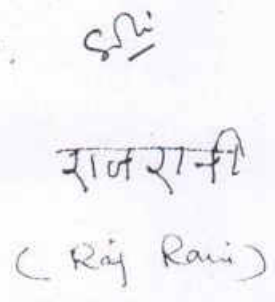 Sd/-
राजरानी
(Raj Rani)